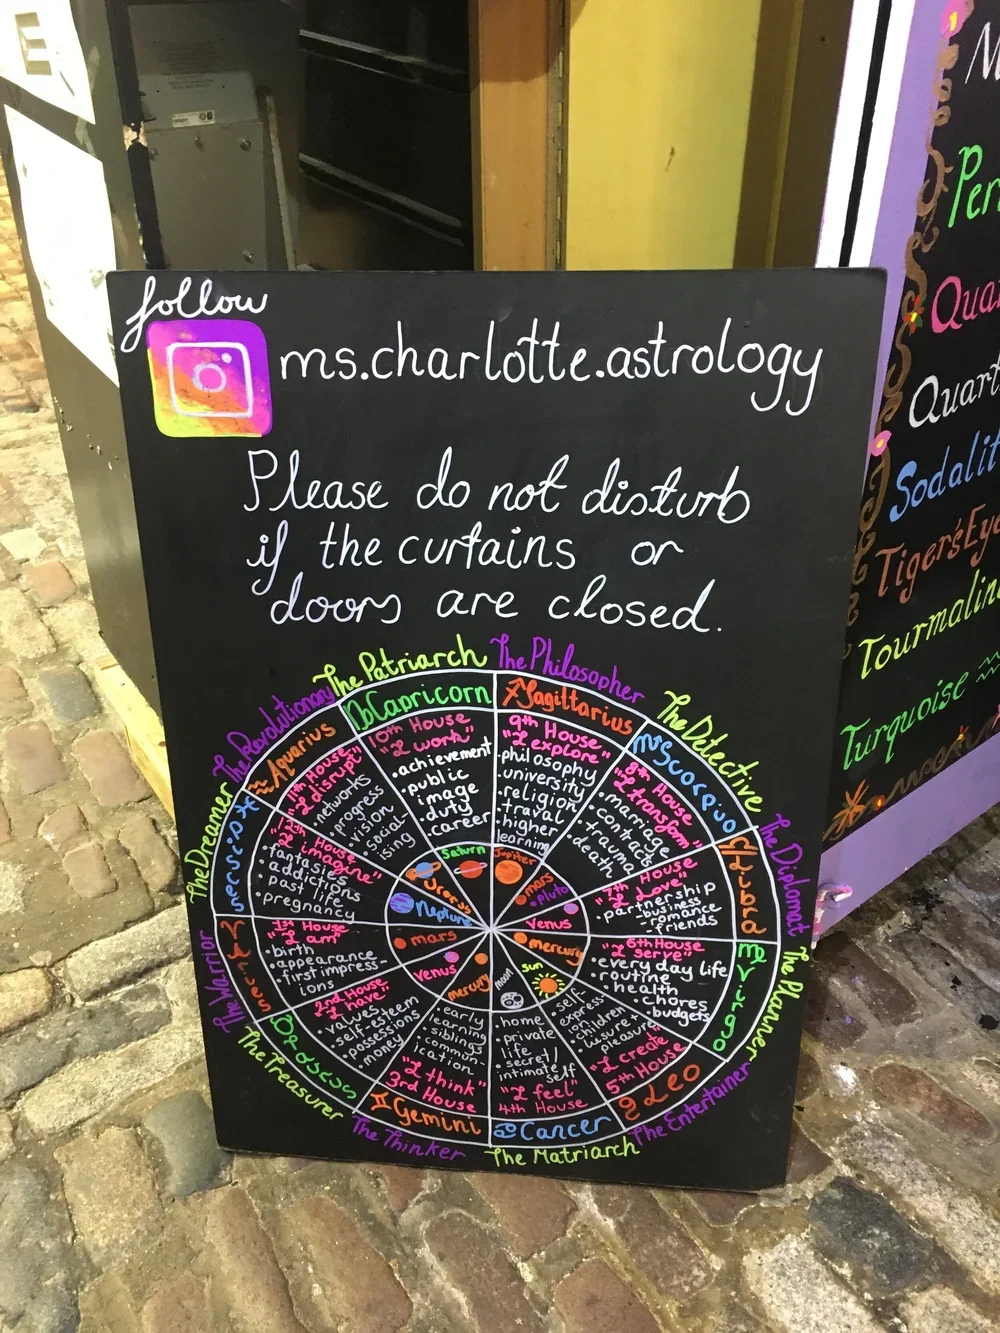 follow
ms.charlotte.astrology
Please do not disturb
if the curtains or
doors are closed.
The Patriarch
♑ Capricorn
10th House
"I work"
•achievement
•public
image
•duty
career
Saturn
The Philosopher
♐ Sagittarius
9th House
"I explore"
•philosophy
•university
•religion
•traval
•higher
learning
Jupiter
The Detective
♏ Scorpio
8th House
"I transform"
•marriage
•contracts
•trauma
•death
mars
•Pluto
The Diplomat
♎ Libra
7th House
"I Love"
•partnership
-business
-romance
-friends
Venus
The Planner
♍ Virgo
6th House
"I serve"
•every day life
•routine
•health
•chores
•budgets
mercury
The Entertainer
♌ Leo
5th House
"I create"
•self-
express
ion
•children
•leisure+
pleasure
Sun
The Matriarch
♋ Cancer
4th House
"I feel"
•home
•private
life
•secret/
intimate
self
moon
The Thinker
♊ Gemini
3rd House
"I think"
•early
earning
•siblings
•commun-
ication
mercury
The Treasurer
♉ Taurus
2nd House
"I have"
•values
•self-esteem
•possessions
•money
Venus
The Warrior
♈ Aries
1st House
"I am"
•birth
•appearance
•first impress-
ions
mars
The Dreamer
♓ Pisces
12th House
"I imagine"
•fantasies
•addictions
•past life
pregnancy
Neptune
The Revolutionary
♒ Aquarius
11th House
"I disrupt"
•networks
•progress
•vision
•social-
ising
Uranus
M
Per
Qua
Quart
Sodalit
Tiger'sEye
Tourmalin
Turquoise